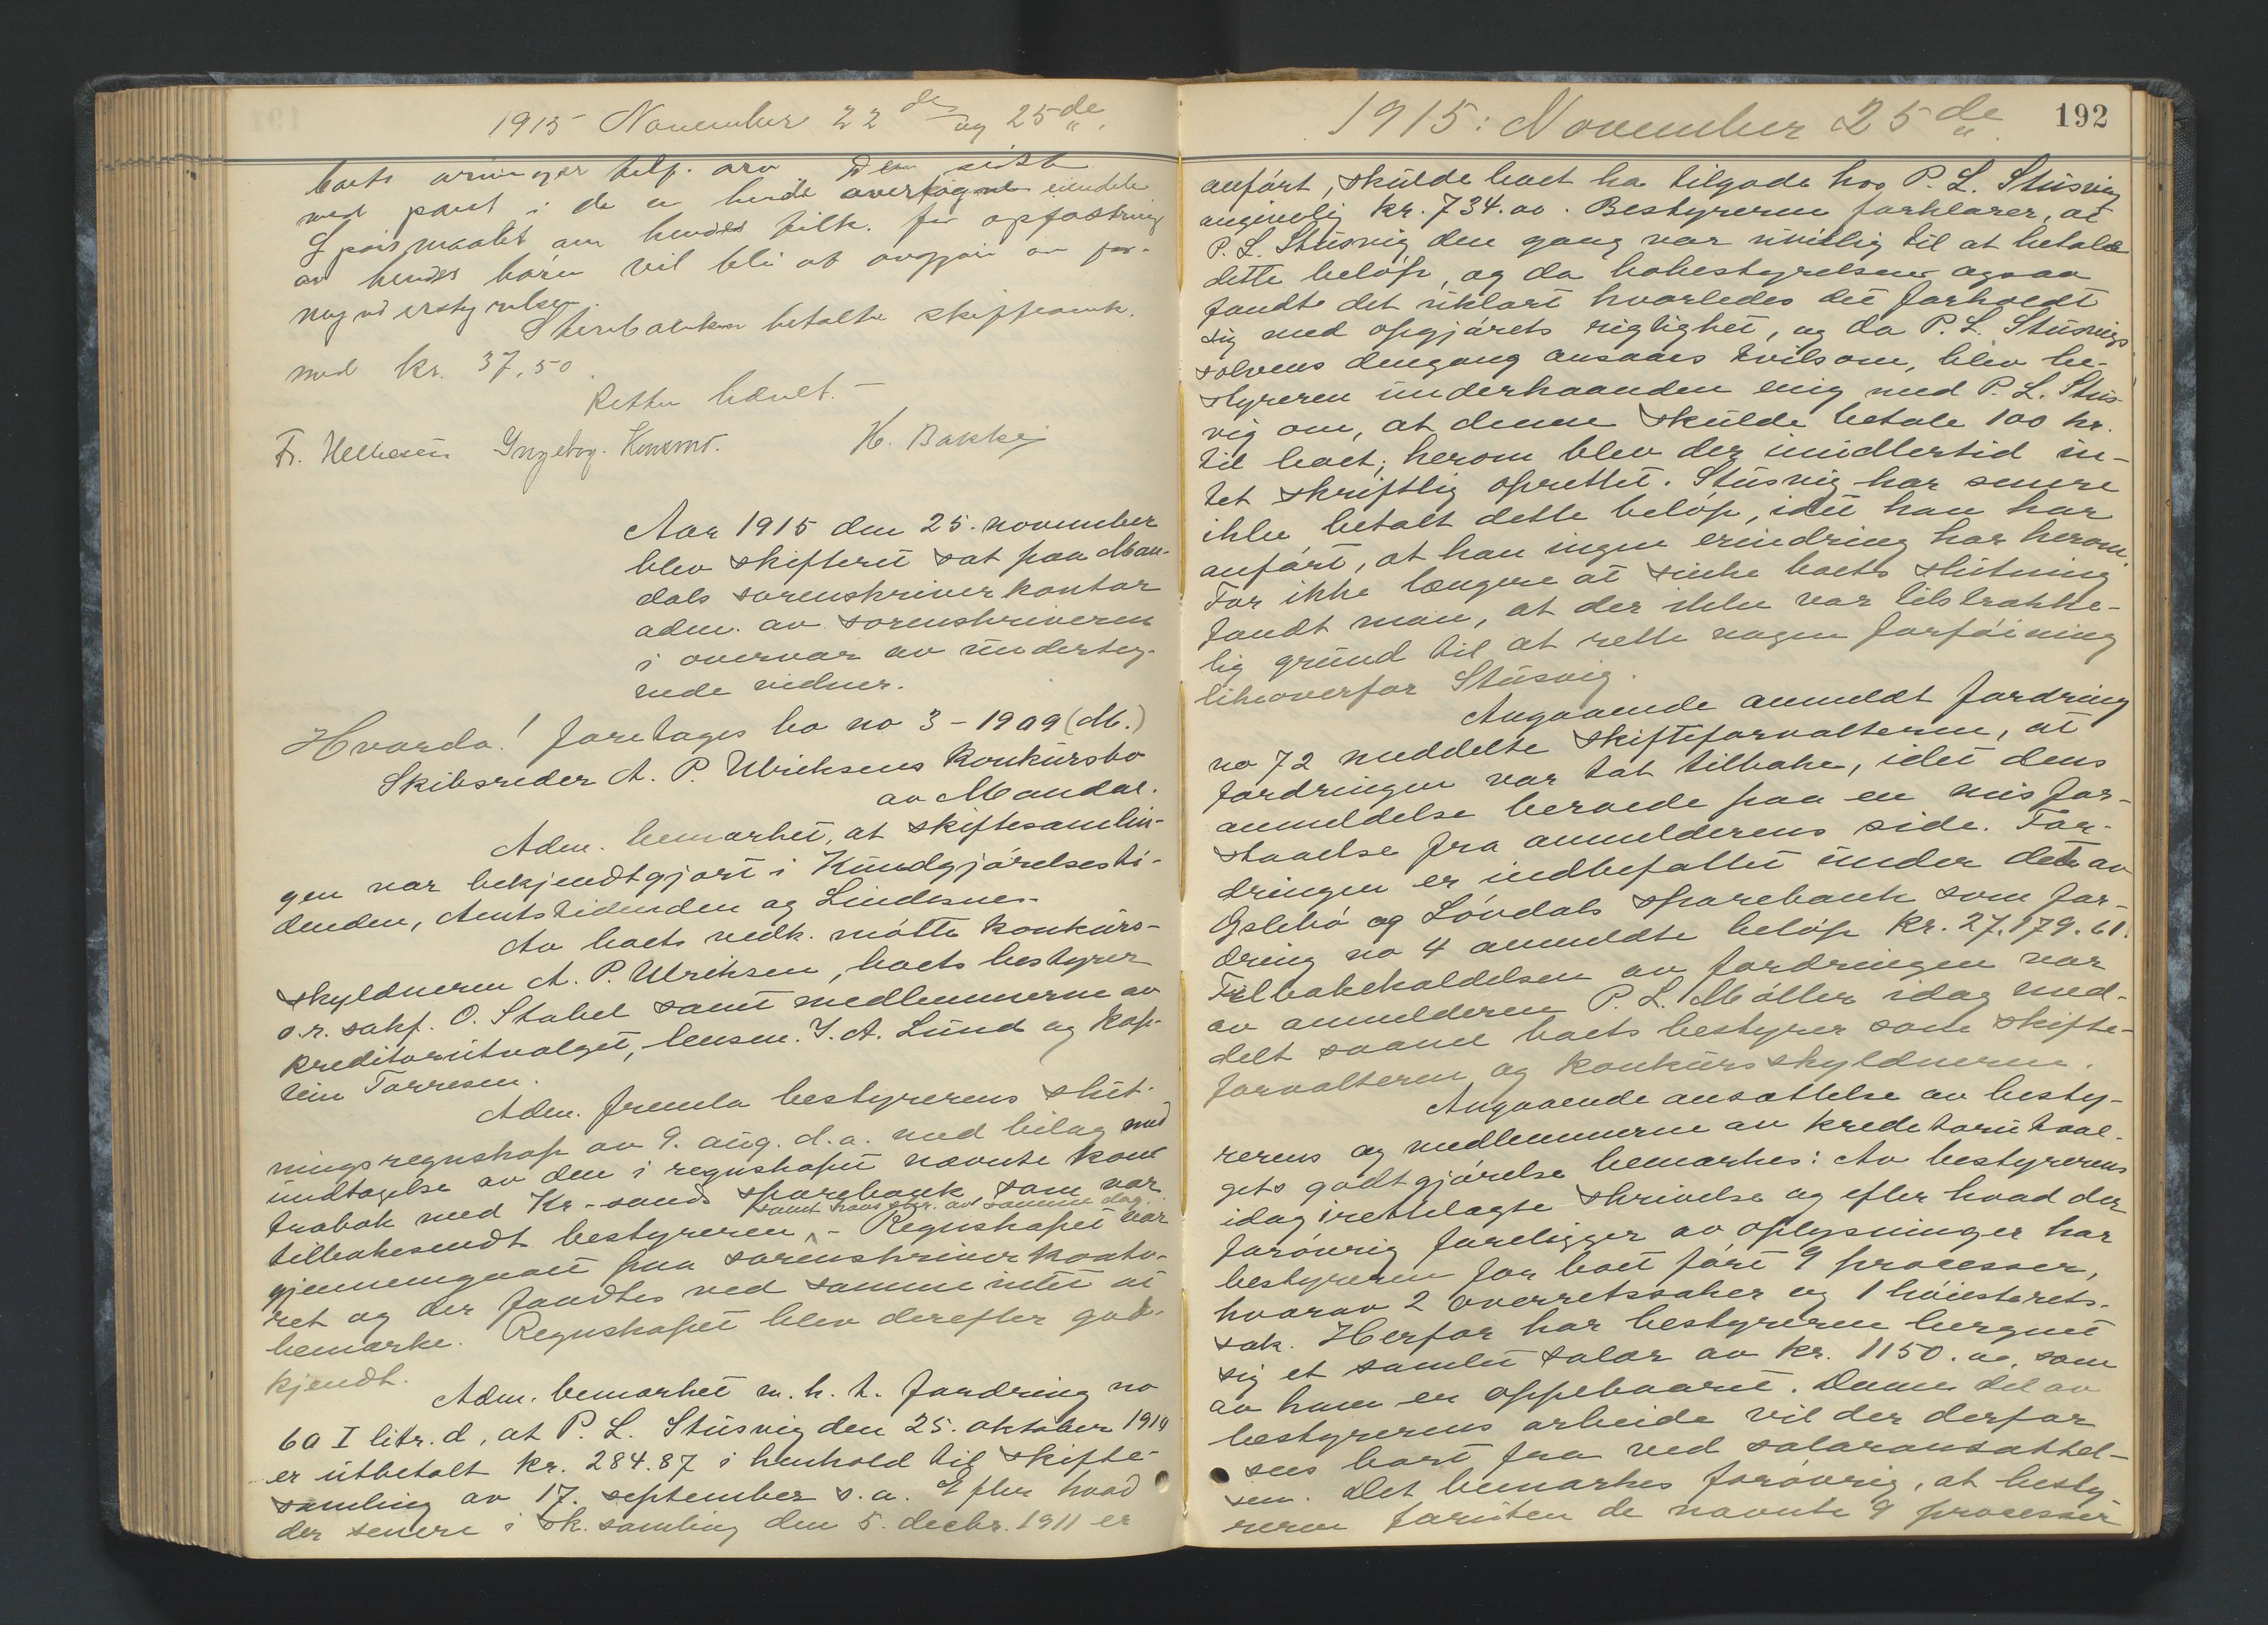 1915 November 22de og 25de
boets arvinger tilf. arv Den siste
med pant i de av hende overtagne eiendele
Spörsmaalet om hendes tilk. for opfostring
av hendes börn vil bli at avgjöre av for-
mynderstyrelsen.
Stervboenken betalte skifteomk.
med kr. 37,50.
Retten hævet. -
Fr. Hellesen Ingebog. H. Bakkej
Aar 1915 den 25. november
blev skifteret sat paa Man-
dals sorenskriverkontor
adm. av sorenskriveren
i overvær av underteg-
nede vidner.
Hvorda! foretages bo no 3 - 1909 (M.)
Skibsreder A. P. Ulriksens konkursbo
av Mandal.
Adm. bemærket, at skiftesamlin-
gen var bekjendtgjort i Kundgjørelsesti-
denden, Amtstidenden og Lindesnes.
Av boets vedk. mötte konkurs-
skyldneren A. P. Ulriksen, boets bestyrer
o.r. sakf. O. Stabel samt medlemmerne av
kreditorutvalget, lensm. J. A. Lund og kap-
tein Torresen.
Adm. fremla bestyrerens slut-
ningsregnskap av 9. aug. d.a. med bilag med
undtagelse av den i regnskapet nævnte kont
trabok med Kr.-sands sparebank som var
samt hans skr. av samme dag.
tilbakesendt bestyreren. - Regnskapet var
gjennemgaaet paa sorenskriverkonto-
ret og der fandtes ved samme intet at
bemærke. Regnskapet blev derefter god-
kjendt.
Adm. bemærket m. h. t. fordring no
60 I litr. d, at P. L. Stusvig den 25. oktober 1910
er utbetalt kr. 284.87 i henhold til skifte-
samling av 17. september s.a. Efter hvad
der senere i sk. samling den 5. decbr. 1911 er
1915: November 25de
192
anført, skulde boet ha tilgode hos P. L. Stusvig
angivelig kr. 734.00. Bestyreren forklarer, at
P. L. Stusvig den gang var uvillig til at betale
dette beløp, og da bobestyrelsen ogsaa
fandt det uklart hvorledes det forholdt
sig med opgjørets rigtighet, og da P. L. Stusvigs
solvens dengang ansaaes tvilsom, blev be-
styreren underhaanden enig med P. L. Stus-
vig om, at denne skulde betale 100 kr.
til boet; herom blev der imidlertid in-
tet skriftlig oprettet. Stusvig har senere
ikke betalt dette beløp, idet han har
anført, at han ingen erindring har herom.
For ikke længere at sinke boets slutning
fandt man, at der ikke var tilstrække-
lig grund til at rette nogen forføining
likeoverfor Stusvig.
Angaaende anmeldt fordring
no 72 meddelte skifteforvalteren, at
fordringen var tat tilbake, idet dens
anmeldelse beroede paa en misfor-
staaelse fra anmelderens side. For-
dringen er indbefattet under det av
Øslebø og Løvdals sparebank som for-
dring no 4 anmeldte beløp kr. 27.179.61.
Tilbakekaldelsen av fordringen var
av anmelderen P. L. Møller idag med-
delt saavel boets bestyrer som skifte-
forvalteren og konkursskyldneren.
Angaaende ansættelse av besty-
rerens og medlemmerne av kreditorutval-
gets godtgjørelse bemærkes: Av bestyrerens
idag irettelagte skrivelse og efter hvad der
forøvrig foreligger av oplysninger har
bestyreren for boet ført 9 processer,
hvorav 2 overretssaker og 1 høiesterets-
sak. Herfor har bestyreren beregnet
sig et samlet salær av kr. 1150.00, som
av ham er oppebaaret. Denne del av
bestyrerens arbeide vil der derfor
sees bort fra ved salæransættel-
sen. Det bemærkes forøvrig, at besty-
reren foruten de nævnte 9 processer